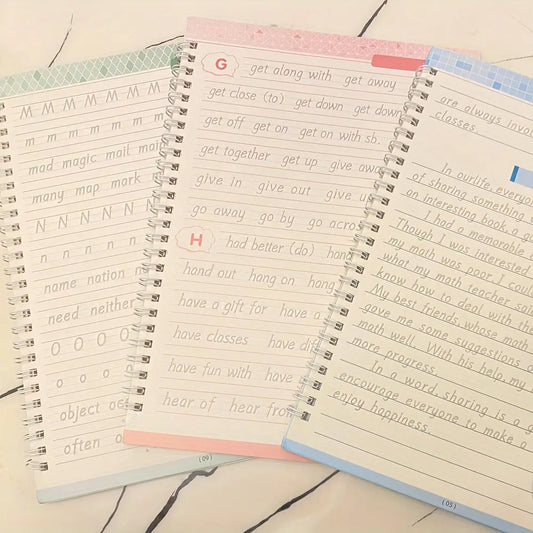 M M M M M M M
m m m m m m m
mad magic mail
many map mark
N N N N N N
n n n n n n
name nation
need neither
O O O O O
o o o o o
object
often
(09)
G
get along with get away
get close (to) get down get down
get off get on get on with sb.
get together get up give away
give in give out give up
go away go by go across
H
had better (do) hand
hand out hang on hang
have a gift for have a
have classes have
have fun with have
hear of hear from
are always
classes.
In our life, everyone
of sharing something
an interesting book, a
I had a memorable
Though I was interested
my math was poor. I could
what my math teacher said
know how to deal with the
My best friends whose math
gave me some suggestions
math well. With his help, my
more progress.
In a word, sharing is a
encourage everyone to make a
enjoy happiness.
(05)